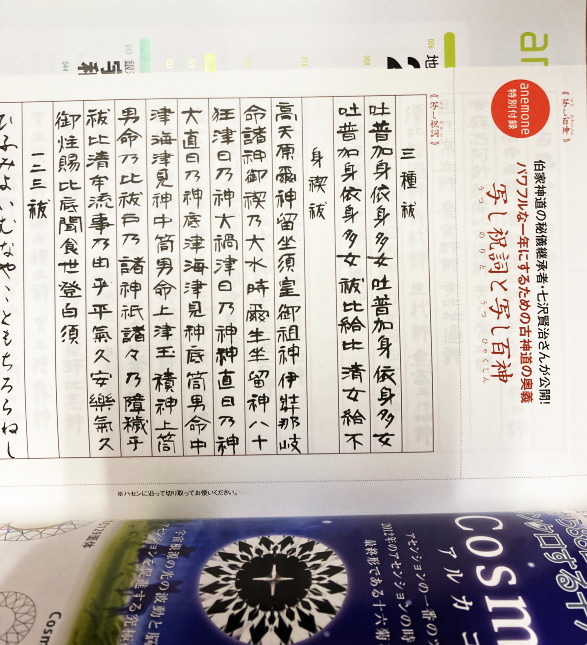 《写し百神》
anemone
特別付録
伯家神道の秘儀継承者・七沢賢治さんが公開!
パワフルな一年にするための古神道の奥義
写し祝詞と写し百神
うつ のりと うつ ひゃくしん
《写し祝詞》
三種祓
吐普加身依身多女 吐普加身依身多女
吐普加身依身多女 祓比給比清女給不
身禊祓
高天原爾神留坐須皇御祖神伊弉那岐
命諸神御禊乃大水時爾生坐留神八十
狂津日乃神大禍津日乃神神直日乃神
大直日乃神底津海津見神底筒男命中
津海津見神中筒男命上津玉積神上筒
男命乃比祓戸乃諸神祇諸々乃障穢乎
祓比清牟流事乃由乎平氣久安樂氣久
御炷賜比底聞食世登白須
一二三祓
ひふみよいむなや、ともちろらねし
※ハセンに沿って切り取ってお使いください。
Cosm
アルカ
アセンションの一番の
2012年のアセンションの時
最終形である十六菊
宇宙根源の光の波動と
アセンションを促進する究極
Cosm